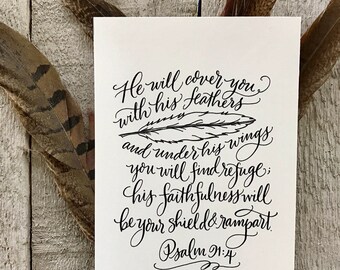 He will cover you
with his feathers
and under his wings
you will find refuge;
his faithfulness will
be your shield & rampart
Psalm 91:4